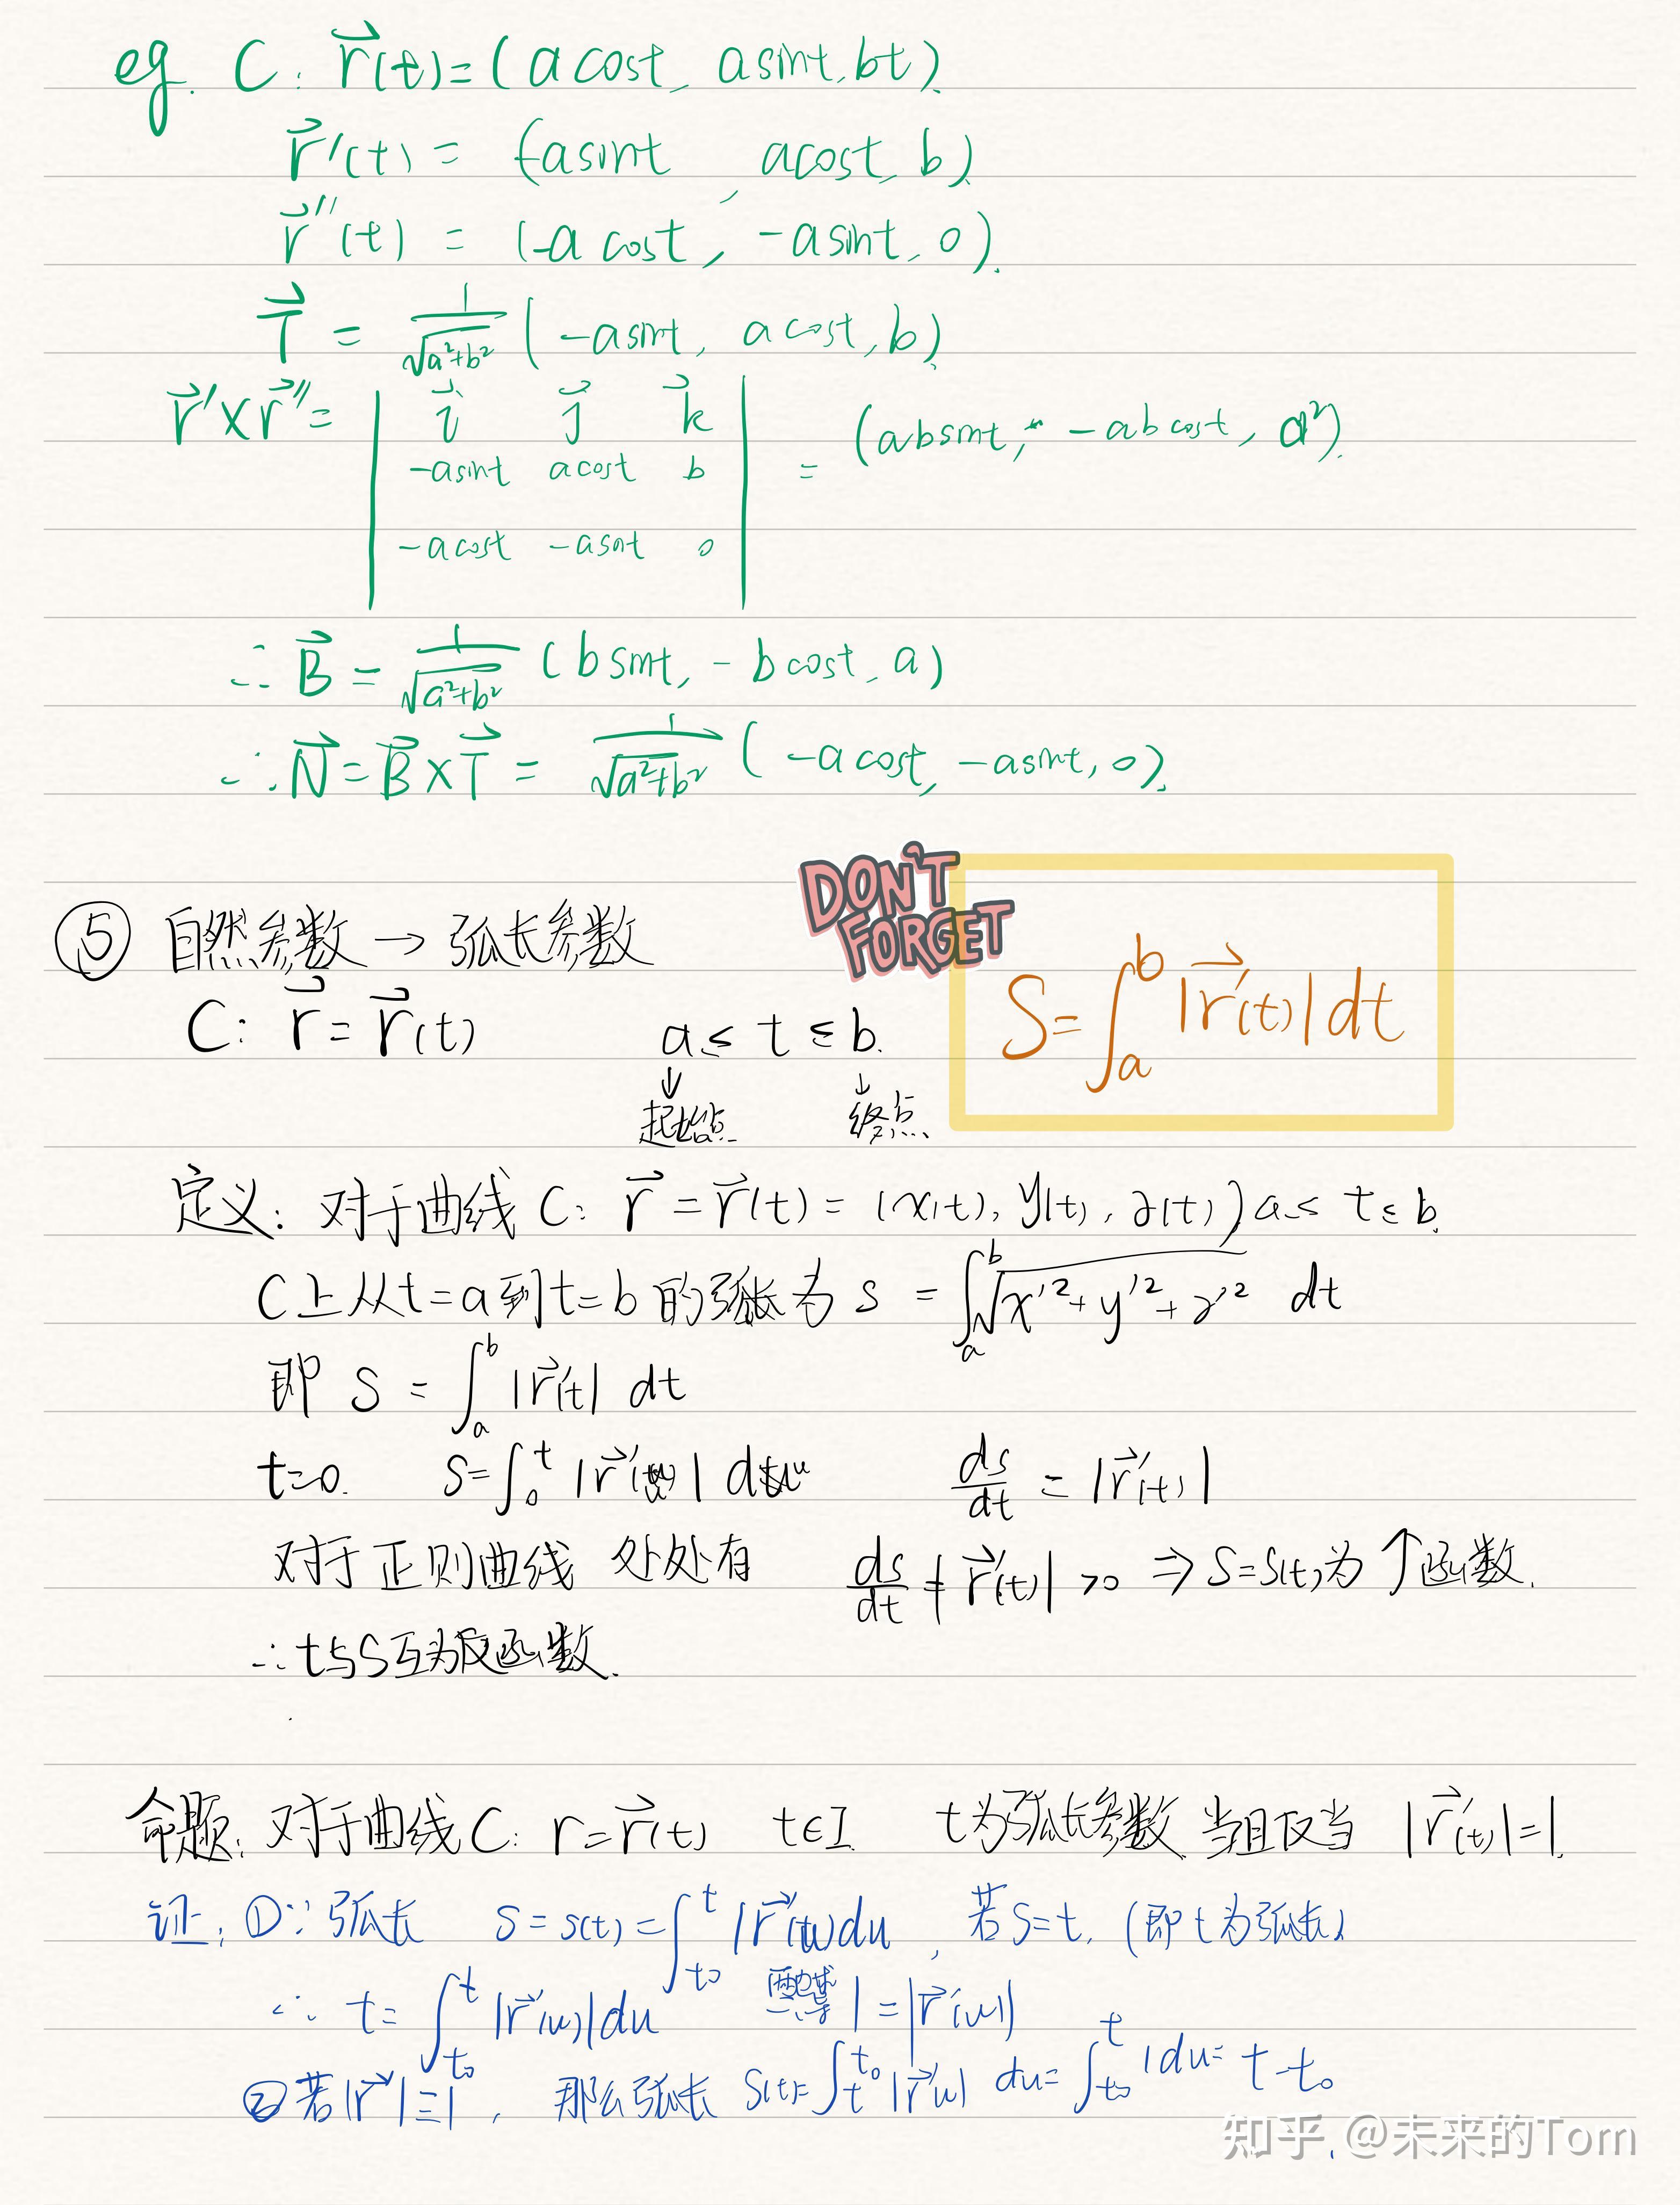 eg. C: r⃗(t)=(acost, asint, bt).
r⃗'(t) = (-asint, acost, b)
r⃗''(t) = (-acost, -asint, 0).
T⃗ = 1/√(a²+b²) (-asint, acost, b)
r⃗'×r⃗'' = | i⃗ j⃗ k⃗ | = (absint, -abcost, a²).
-asint acost b
-acost -asint 0
∴ B⃗ = 1/√(a²+b²) (bsint, -bcost, a)
∴ N⃗ = B⃗×T⃗ = 1/√(a²+b²) (-acost, -asint, 0).
DON'T FORGET
S=∫_a^b |r⃗'(t)|dt
⑤ 自然参数→弧长参数
C: r⃗=r⃗(t) a≤t≤b.
↓ 起始点 ↓ 终点
定义: 对于曲线C: r⃗=r⃗(t)=(x(t), y(t), z(t)) a≤t≤b.
C上从t=a到t=b的弧长为 s = ∫_a^b √(x'²+y'²+z'²) dt
即 S = ∫_a^b |r⃗'(t)| dt
t=0. S=∫_0^t |r⃗'(u)| du ds/dt = |r⃗'(t)|
对于正则曲线 处处有 ds/dt = |r⃗'(t)| >0 ⇒ S=S(t)为↑函数.
∴ t与S互为反函数.
命题: 对于曲线C: r=r⃗(t) t∈I t为弧长参数 当且仅当 |r⃗'(t)|=1.
证: ①∵弧长 s=s(t)=∫_{t0}^t |r⃗'(u)|du, 若S=t, (即t为弧长)
∴ t=∫_{t0}^t |r⃗'(u)|du 1=|r⃗'(u)|
②若|r⃗'|≡1, 那么弧长 S(t)=∫_t^{t0} |r⃗'(u)| du=∫_{t0}^t 1du= t-t0
知乎 @未来的Tom